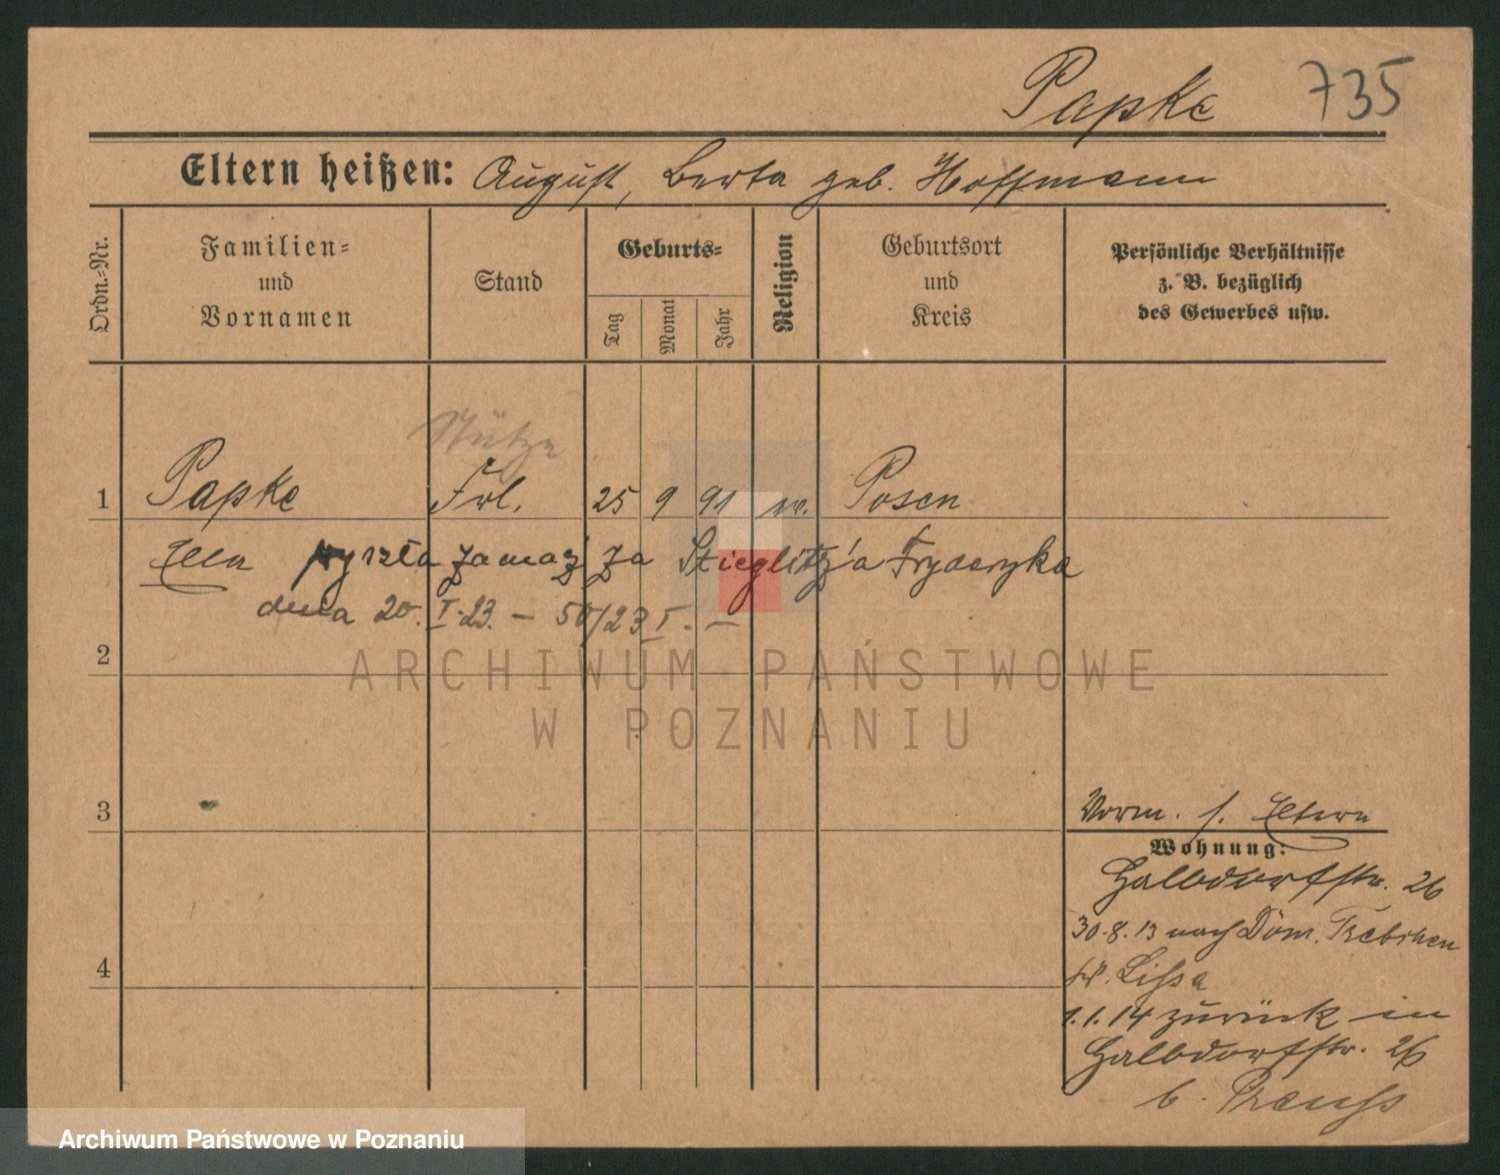 Papke 735
Eltern heißen: August, Berta geb. Hoffmann
Ordn.-Nr.
Familien-
und
Vornamen
Stand
Geburts-
Tag
Monat
Jahr
Religion
Geburtsort
und
Kreis
Persönliche Verhältnisse
z. B. bezüglich
des Gewerbes usw.
Stütze
1 Papke Frl. 25 9 91 ev. Posen
Ella wyszła zamąż za Stieglitz'a Fryderyka
dnia 20.I.23. – 50/23 I. –
2
ARCHIWUM PAŃSTWOWE
W POZNANIU
3
Vorm. s. Eltern
Wohnung:
Halbdorfstr. 26
30.8.13 nach Dom. Trebchen
4
Kr. Lissa
1.1.14 zurück in
Halbdorfstr. 26
b. Preuss
Archiwum Państwowe w Poznaniu